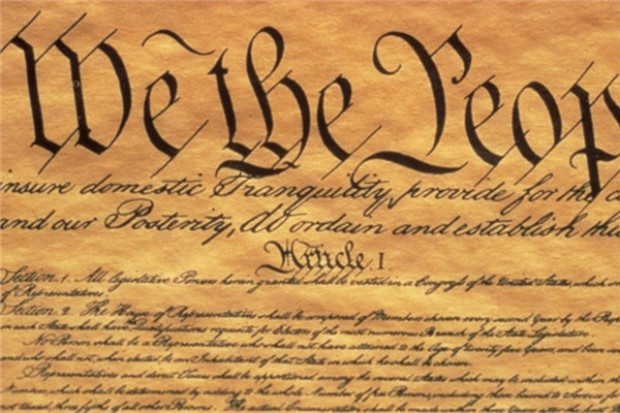 We the Peop
insure domestic Tranquility, provide for the
and our Posterity, do ordain and establish this
Article. I
Section. 1. All legislative Powers herein granted shall be vested in a Congress of the United States, which
of Representatives.
Section. 2. The House of Representatives shall be composed of Members chosen every second Year by the
in each State shall have Qualifications requisite for Electors of the most numerous Branch of the State Legislature.
No Person shall be a Representative who shall not have attained to the Age of twenty five Years, and been
and who shall not, when elected, be an Inhabitant of that State in which he shall be chosen.
Representatives and direct Taxes shall be apportioned among the several States which may be included within
Numbers, which shall be determined by adding to the whole Number of free Persons, including those bound to Service
not taxed, three fifths of all other Persons. The actual Enumeration shall be made within three Years